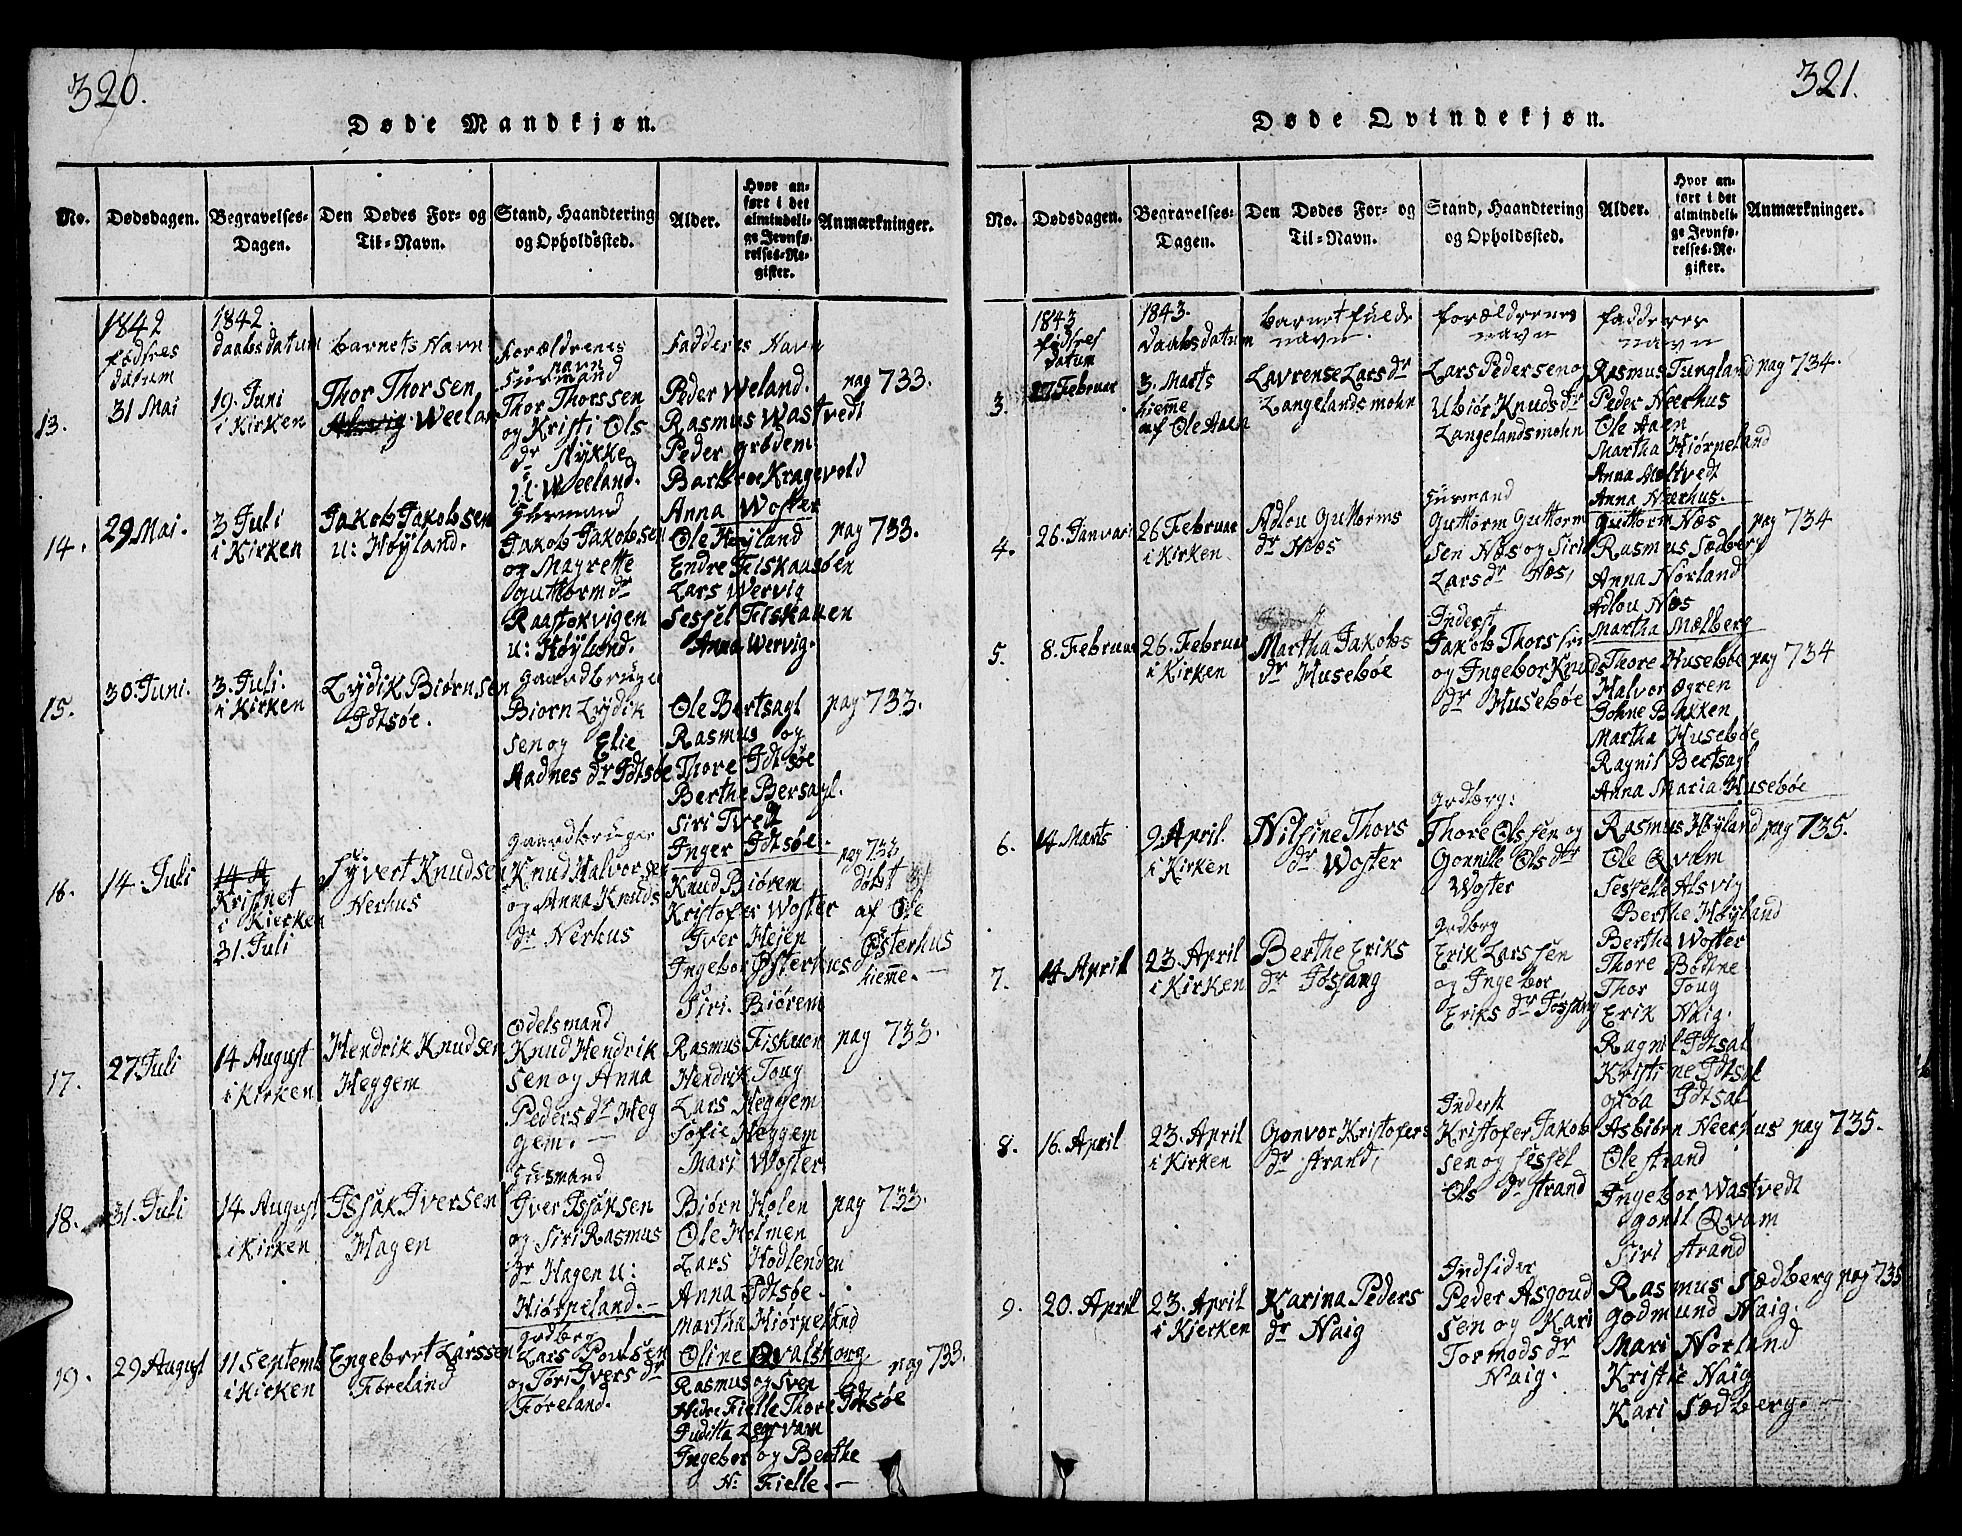 320.
Døde Mandkjøn.
No.
Dødsdagen.
Begravelses-
Dagen.
Den Dødes For- og
Til-Navn.
Stand, Haandtering
og Opholdssted.
Alder.
Hvor an-
ført i det
almindeli-
ge Jevnfø-
relses-Re-
gister.
Anmærkninger.
1842
fødsels
datum
1842.
daabs datum
barnets Navn
forældrenes
navn
Fadderes Navn
13.
31 Mai
19. Juni
i Kirken
Thor Thorsen
Weeland
Huusmand
Thor Thorssen
og Kristi Ols
dr Stykke
u: Weeland.
Peder Weland.
Rasmus Wastvedt
Peder Grødem
Barbroe Kragevold
Anna Woster
pag 733.
14.
29 Mai.
3 Juli
i Kirken
Jakob Jakobsen
u: Høyland.
Huusmand
Jakob Jakobsen
og Magrette
Guttormdr
Raastokvigen
u: Høyland.
Ole Høyland
Endre Fiskaasøen
Lars Wervig
Sessel Fiskauen
Anna Wervig.
pag 733.
15.
30. Juni.
3. Juli.
i Kirken
Lydik Biørnsen
Idtsøe.
Gaardbruger
Biorn Lydik
sen og Elie
Aadnes dr Idtsøe
Ole Bertsagl
Rasmus og
Thore Idtsøe
Berthe Bersagl.
Siri Tvedt
Inger Idtsøe.
pag 733.
16.
14. Juli
Kristnet
i Kierken
31. Juli
Syvert Knudsen
Nerhus
Gaardbruger
Knud Halvorsen
og Anna Knuds
dr Nerhus
Knud Biørem
Kristofer Woster
Iver Hejen
Ingebor Østerhus
Siri Biørem
pag 733
døbt
af Ole
Østerhus
hiemme.
17.
27 Juli
14 August
i Kirken
Hendrik Knudsen
Heggem
Odelsmand
Knud Hendrik
sen og Anna
Peders dr Heg
gem.
Rasmus Fiskuen
Hendrik Toug
Lars Heggem
Sofie Heggem
Mari Woster
pag 733.
18.
31. Juli
14. August
i Kirken
Issak Iversen
Hagen
Huusmand
Iver Issaksen
og Siri Rasmus
dr Hagen u:
Hiørpeland.
Biørn Holen
Ole Holmen
Lars Hodlenden
Anna Idtsøe.
Martha Hiørpeland
Oline Qvalshorg
pag 733.
19.
29 August
11 Septemb
i Kirken
Engebret Larssen
Føreland
Grdbrg
Lars Poulsen
og Tori Ivers dr
Føreland.
Rasmus og Sven
Nedre Fielle Thore Idtsøe
Juditta Leqvam
Ingebor og Berthe
N: Fielle.
pag 733.
321.
Døde Qvindekjøn.
No.
Dødsdagen.
Begravelses-
Dagen.
Den Dødes For- og
Til-Navn.
Stand, Haandtering
og Opholdssted.
Alder.
Hvor an-
ført i det
almindeli-
ge Jevnfø-
relses-Re-
gister.
Anmærkninger.
1843
fødsels
datum
1843.
Daabsdatum
barnet fulde
navn.
forældrenes
navn
fadderer
navn
3.
27 Februar
3. Marts
hiemme
af Ole Aaen
Lavrense Lars dr
Langelandsmohn
Lars Pedersen og
Ubiør Knuds dr
Langelandsmohn
Rasmus Tungland
Peder Neerhus
Ole Aaen
Martha Hiørpeland
Anna Meltvedt
Anna Neerhus.
pag 734.
4.
26. Januari
26 Februar
i Kirken
Adlou Guttorms
dr Næs
Huusmand
Guttorm Guttorm
sen Næs og Siri
Larsdr Næs,
Guttorm Næs
Rasmus Sædberg
Anna Norland
Adlou Næs
Martha Mælberg
pag 734
5.
8. Februar
26. Februar
i Kirken
Martha Jakobs
dr Husebøe
Inderst
Jakob Thorssen
og Ingebor Knuds
dr Husebøe
Thore Husebøe
Halvor Ægren
Johne Bakken
Martha Husebøe
Ragnil Bertsagl
Anna Maria Husebøe
pag 734
6.
14 Marts
9 April.
i Kirken
Nilsine Thors
dr Woster
Grdbrg:
Thore Olssen og
Gonnille Ols dr
Woster
Rasmus Høyland
Ole Qvam
Sesselle Alsvig
Berthe Høyland
Berthe Woster
pag 735.
7.
14 April
23. April
i Kirken
Berthe Eriks
dr Tøssang
Grdbrg
Erik Larssen
og Ingebor
Eriks dr Tøssang
Thore Bødtne
Thor Toug
Erik Naig.
Ragnil Idtsal
Kristine Idtsal
og Tøa Idtsal
8.
16. April
23. April
i Kirken
Gonvor Kristofers
dr Strand,
Inderst
Kristofer Jakob
sen og Sissel
Ols dr Strand
Asbiørn Neerhus
Ole Strand
Ingebor Wastvedt
Gonil Qvam
Siri Strand
pag 735.
9.
20. April
23. April
i Kierken
Karina Peders
dr Naig
Indsider
Peder Asgoud
sen og Kari
Tormods dr
Naig.
Rasmus Sædberg
Godmund Naig.
Mari Norland
Kristie Naig
Kari Sædberg.
pag 735